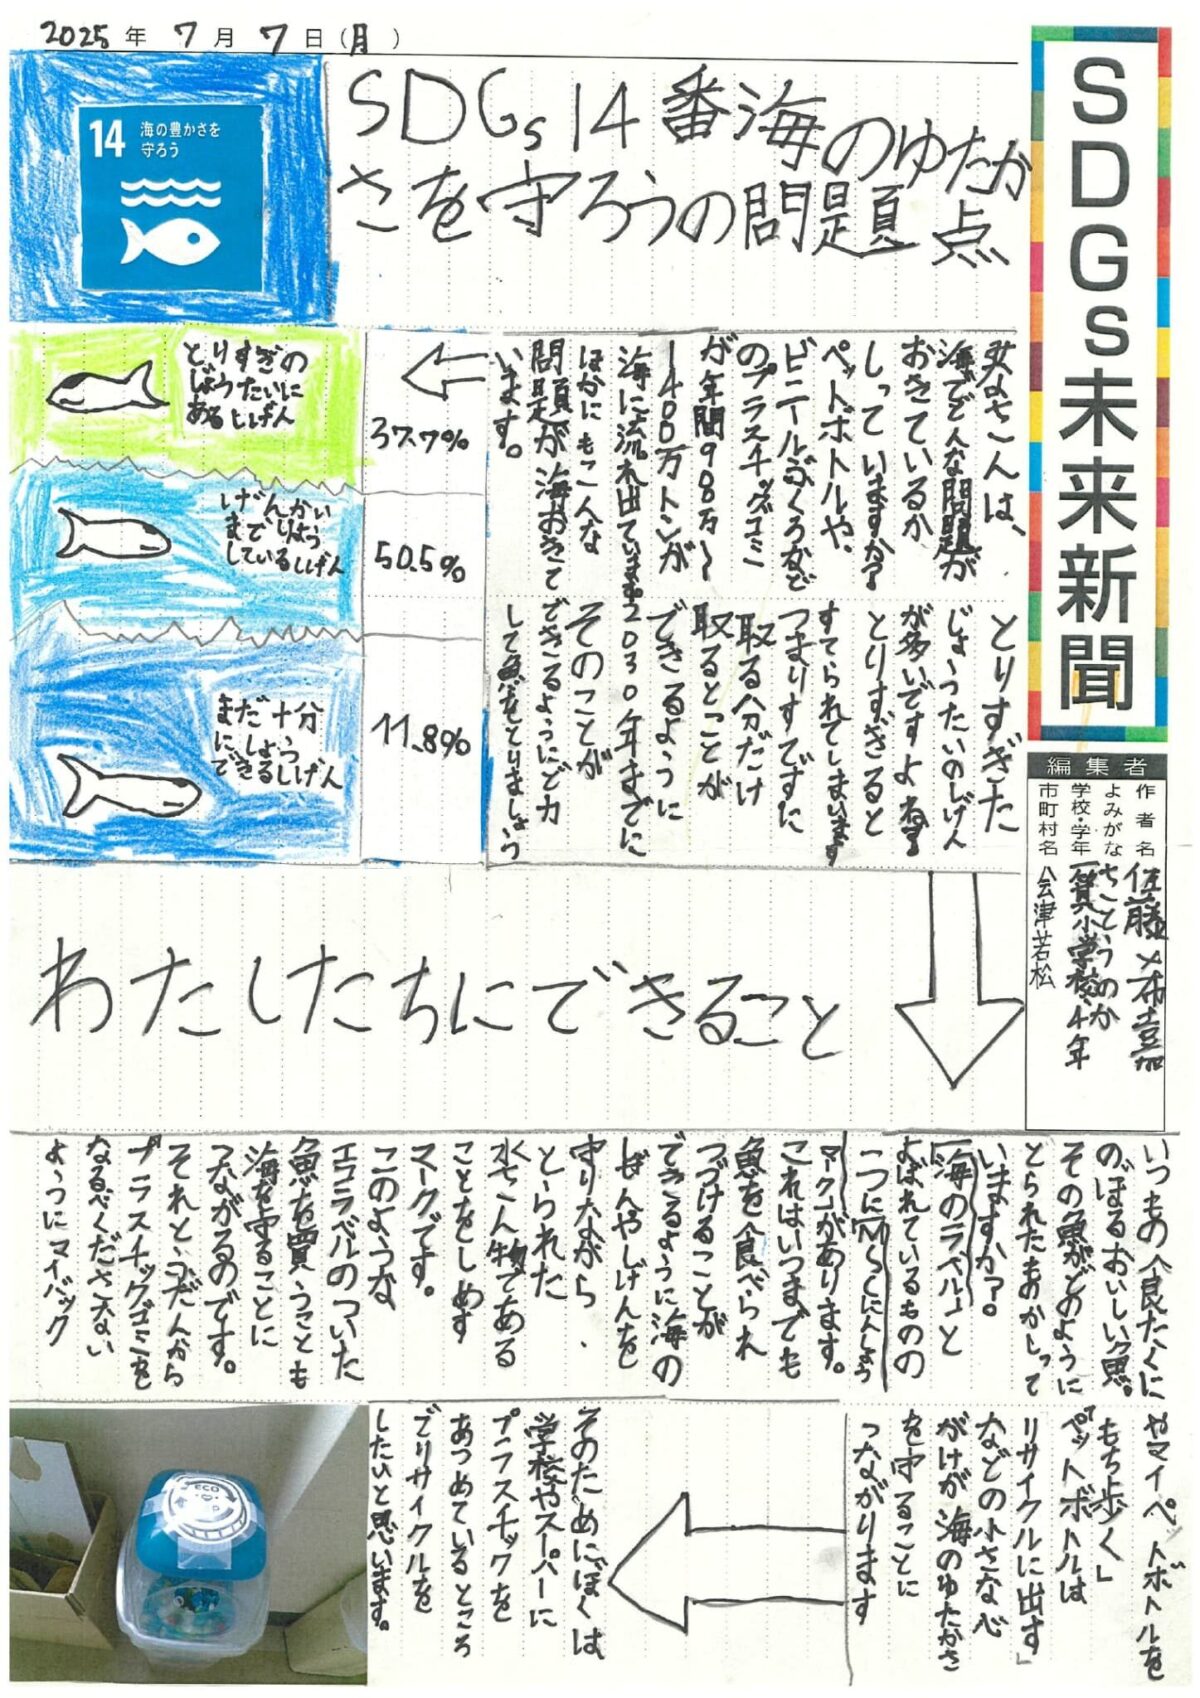 2025年7月7日(月)
SDGs未来新聞
編集者
作者名 佐藤
よみがな さとうのか
学校・学年 一箕小学校・4年
市町村名 会津若松
14 海の豊かさを
守ろう
SDGs14番海のゆたか
さを守ろうの問題点
みなさんは、
海でどんな問題が
おきているか
しっていますか?
ペットボトルや、
ビニールぶくろなど
のプラスチックゴミ
が年間900万〜
1400万トンが
海に流れ出ています。
ほかにもこんな
問題が海おきて
います。
とりすぎの
じょうたいに
あるしげん
37.7%
げんかい
までりよう
しているしげん
50.5%
まだ十分
にしよう
できるしげん
11.8%
とりすぎた
じょうたいのしげん
が多いですよね。
とりすぎると
すてられてしまいます
つまりすでずに
取る分だけ
取るとことが
できるように
2030年までに
そのことが
できるようにど力
して魚をとりましょう
わたしたちにできること
いつもの食たくに
のぼるおいしい魚。
その魚がどのように
とられたもおかしって
いますか?。
「海のラベル」と
よばれているものの
一つに「MSCにんしょう
マーク」があります。
これはいつまでも
魚を食べられ
つづけることが
できるように海の
しぜんやしげんを
守りながら、
とられた
水さん物である
ことをしめす
マークです。
このような
エコラベルのついた
魚を買うことも
海を守ることに
つながるのです。
それとふだんから
プラスチックゴミを
なるべくださない
ようにマイバック
やマイペットボトルを
もち歩く」
ペットボトルは
リサイクルに出す」
などの小さな心
がけが海のゆたかさ
を守ることに
つながります
そのためにぼくは
学校やスーパーに
プラスチックを
あつめているところ
でリサイクルを
したいと思います。
ECO